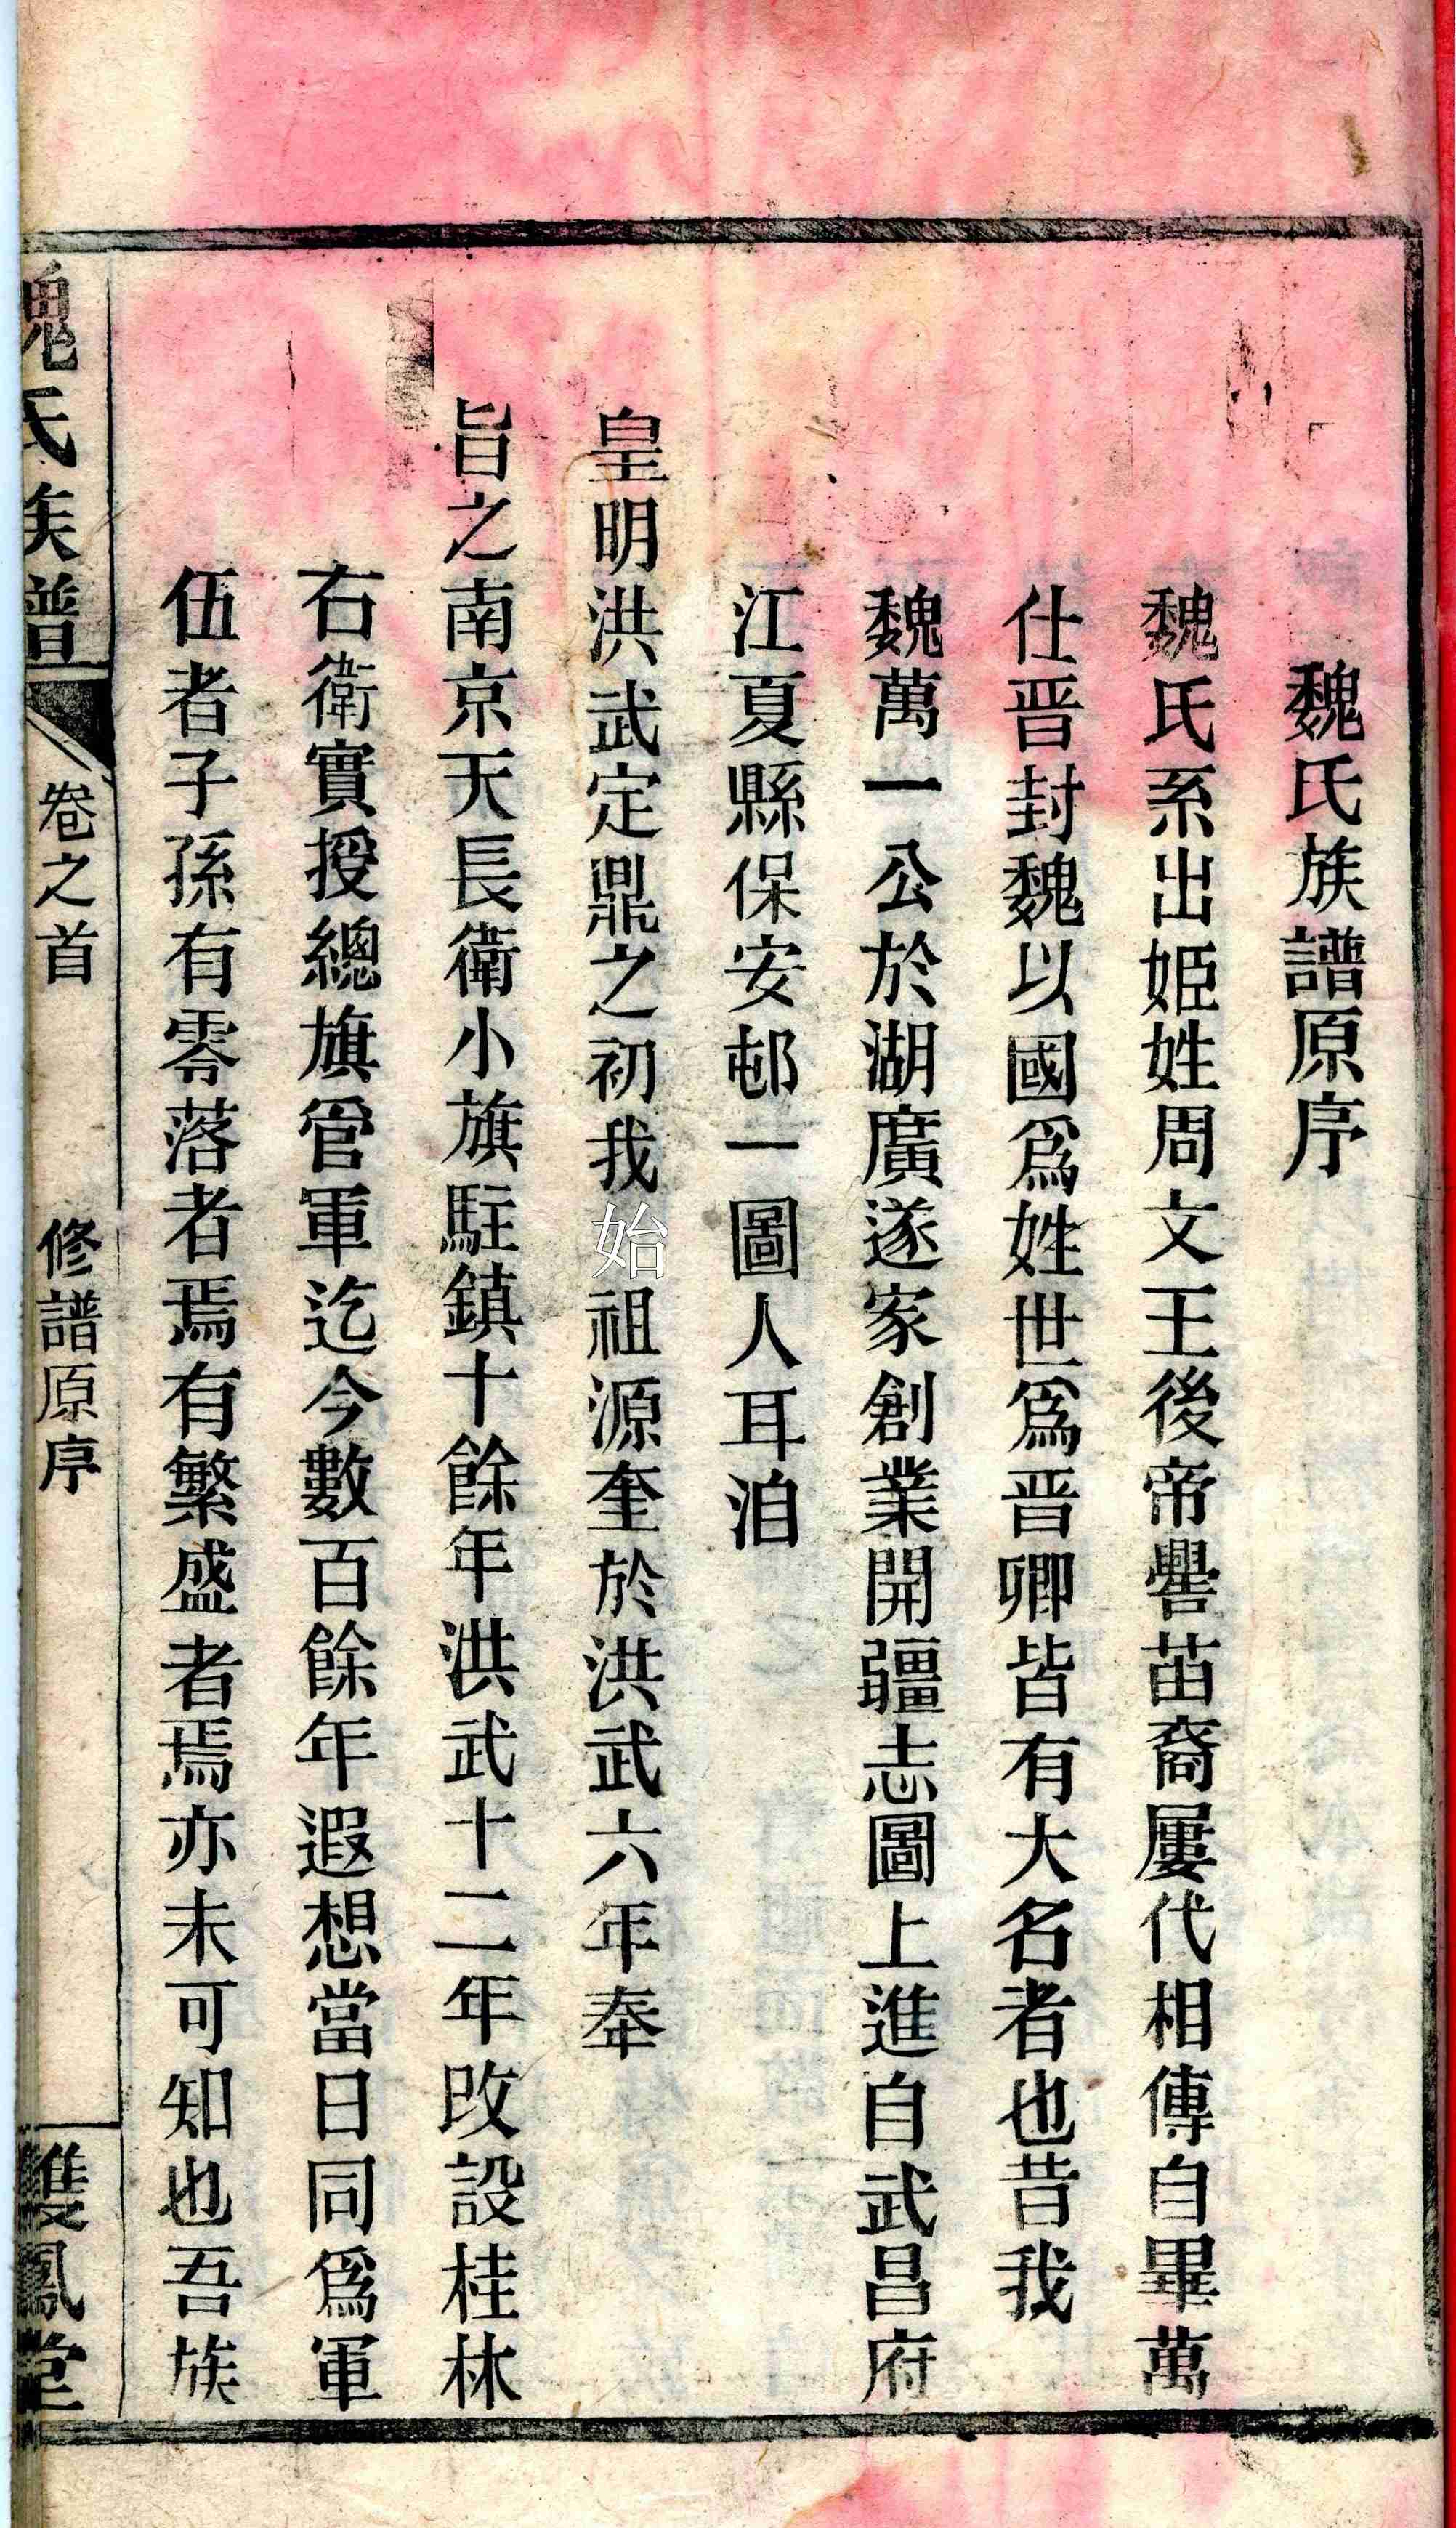 魏氏族譜原序
魏氏系出姬姓周文王後帝嚳苗裔屢代相傳自畢萬
仕晋封魏以國爲姓世爲晋卿皆有大名者也昔我
魏萬一公於湖廣遂家創業開疆志圖上進自武昌府
江夏縣保安邨一圖人耳洎
皇明洪武定鼎之初我始祖源奎於洪武六年奉
旨之南京天長衛小旗駐鎮十餘年洪武十二年改設桂林
右衛實授總旗管軍迄今數百餘年遐想當日同爲軍
伍者子孫有零落者焉有繁盛者焉亦未可知也吾族
魏氏族譜 卷之首 修譜原序 雙鳳堂